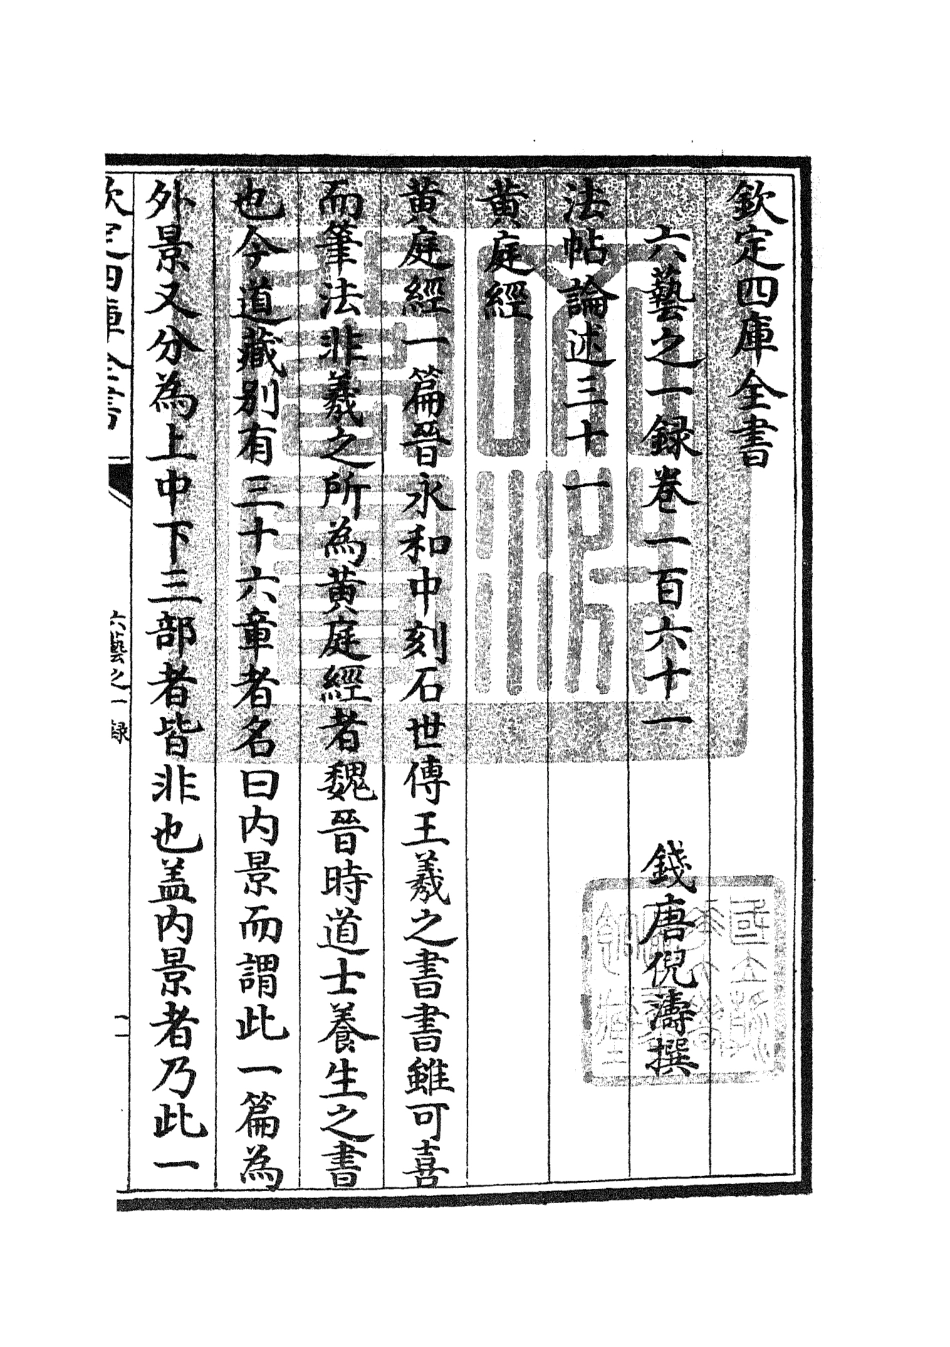 欽定四庫全書
六藝之一録卷一百六十一
錢唐倪濤撰
法帖論述三十一
黄庭經
黄庭經一篇晉永和中刻石世傳王羲之書書雖可喜
而筆法非羲之所為黄庭經者魏晉時道士養生之書
也今道藏别有三十六章者名曰内景而謂此一篇為
外景又分為上中下三部者皆非也盖内景者乃此一
欽定四庫全書
六藝之一録
一